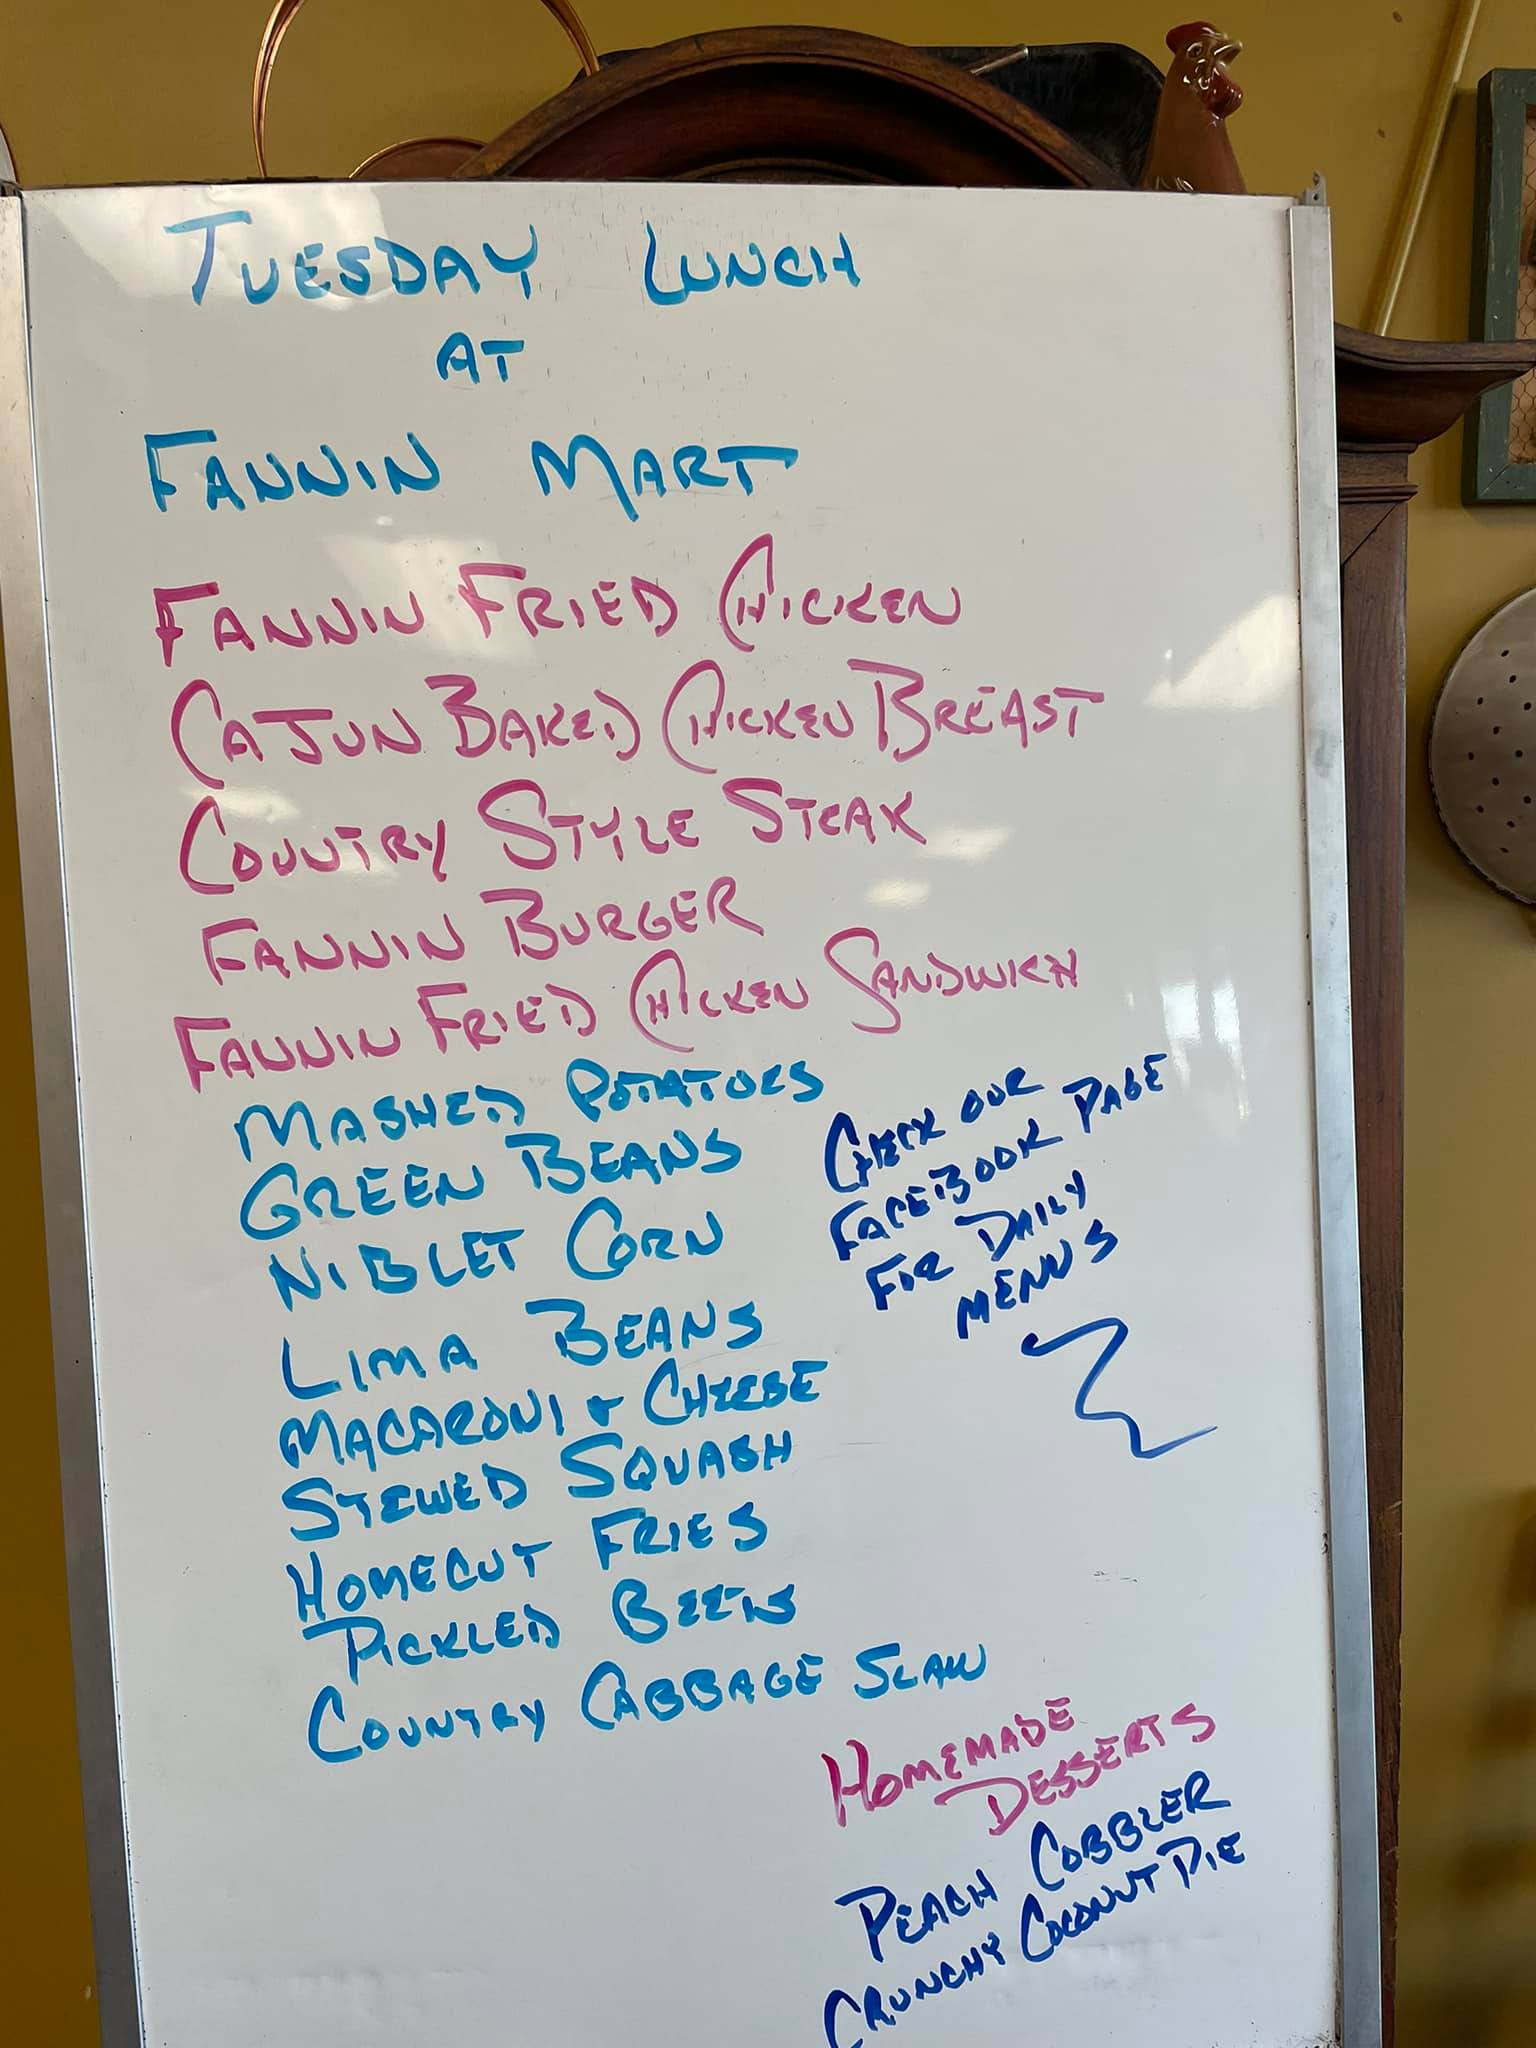 TUESDAY LUNCH
AT
FANNIN MART
FANNIN FRIED CHICKEN
CAJUN BAKED CHICKEN BREAST
COUNTRY STYLE STEAK
FANNIN BURGER
FANNIN FRIED CHICKEN SANDWICH
MASHED POTATOES
GREEN BEANS
NIBLET CORN
LIMA BEANS
MACARONI & CHEESE
STEWED SQUASH
HOMECUT FRIES
PICKLED BEETS
COUNTRY CABBAGE SLAW
CHECK OUR
FACEBOOK PAGE
FOR DAILY
MENUS
HOMEMADE
DESSERTS
PEACH COBBLER
CRUNCHY COCONUT PIE